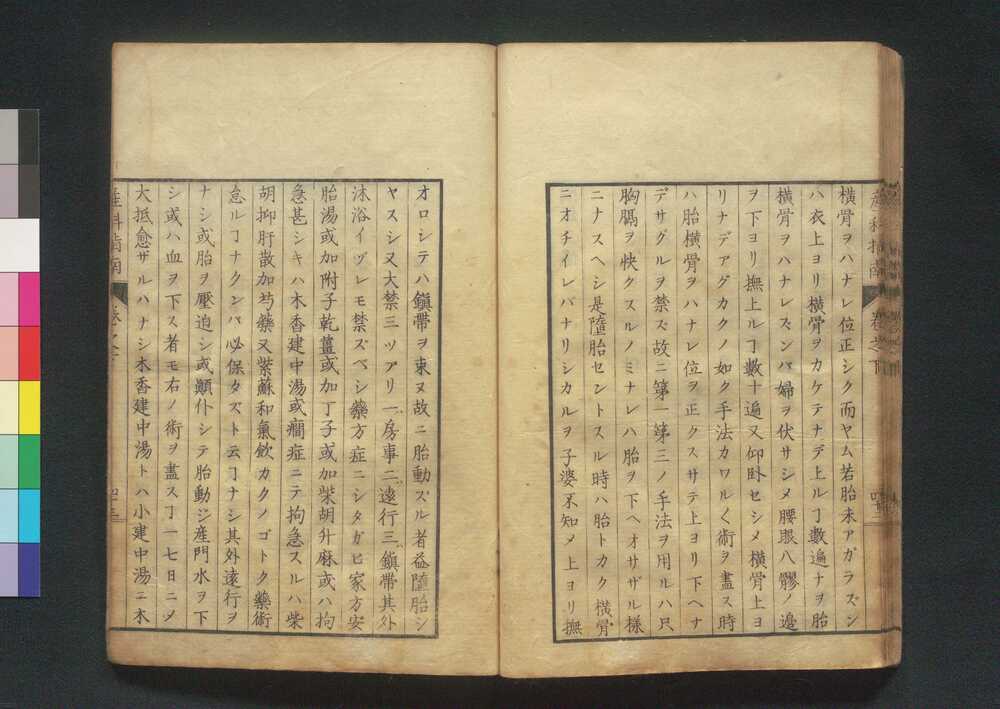 横骨ヲハナレ位正シク而ヤム若胎未アガラズン
ハ衣上ヨリ横骨ヲカケテナデ上ルヿ數遍ナヲ胎
横骨ヲハナレズンバ婦ヲ伏サシメ腰眼八髎ノ邉
ヲ下ヨリ撫上ルヿ數十遍又仰臥セシメ横骨上ヨ
リナデアグカクノ如ク手法カワル〱術ヲ盡ス時
ハ胎横骨ヲハナレ位ヲ正クスサテ上ヨリ下ヘナ
デサグルヲ禁ズ故ニ第一第三ノ手法ヲ用ルハ只
胸膈ヲ快クスルノミナレハ胎ヲ下ヘオサザル樣
ニナスヘシ是墮胎セントスル時ハ胎トカク横骨
ニオチイレバナリシカルヲ子婆不知メ上ヨリ撫
オロシテハ鎭帶ヲ束ヌ故ニ胎動ズル者益墮胎シ
ヤスシ又大禁三ツアリ一房事二遠行三鎭帶其外
沐浴イヅレモ禁ズベシ藥方症ニシタガヒ家方安
胎湯或加附子乾薑或加丁子或加柴胡升麻或ハ拘
急甚シキハ木香建中湯或癇症ニテ拘急スルハ柴
胡抑肝散加芍藥又紫蘇和氣飲カクノゴトク藥術
怠ルヿナクンバ必保タズト云ヿナシ其外遠行ヲ
ナシ或胎ヲ壓迫シ或顚仆シテ胎動ジ産門水ヲ下
シ或ハ血ヲ下ス者モ右ノ術ヲ盡スヿ一七日ニメ
大抵愈ザルハナシ木香建中湯トハ小建中湯ニ木
産科指南
卷之下